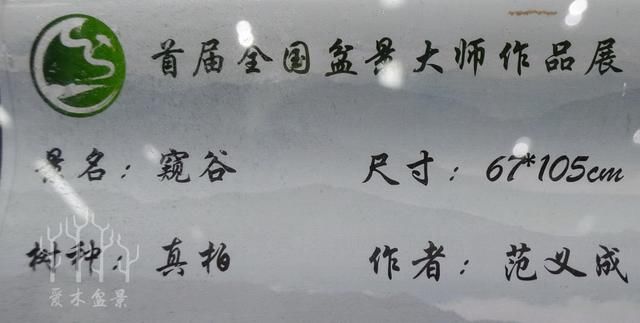 首届全国盆景大师作品展
景名：窥谷 尺寸：67*105cm
树种：真柏 作者：范义成
爱木盆景